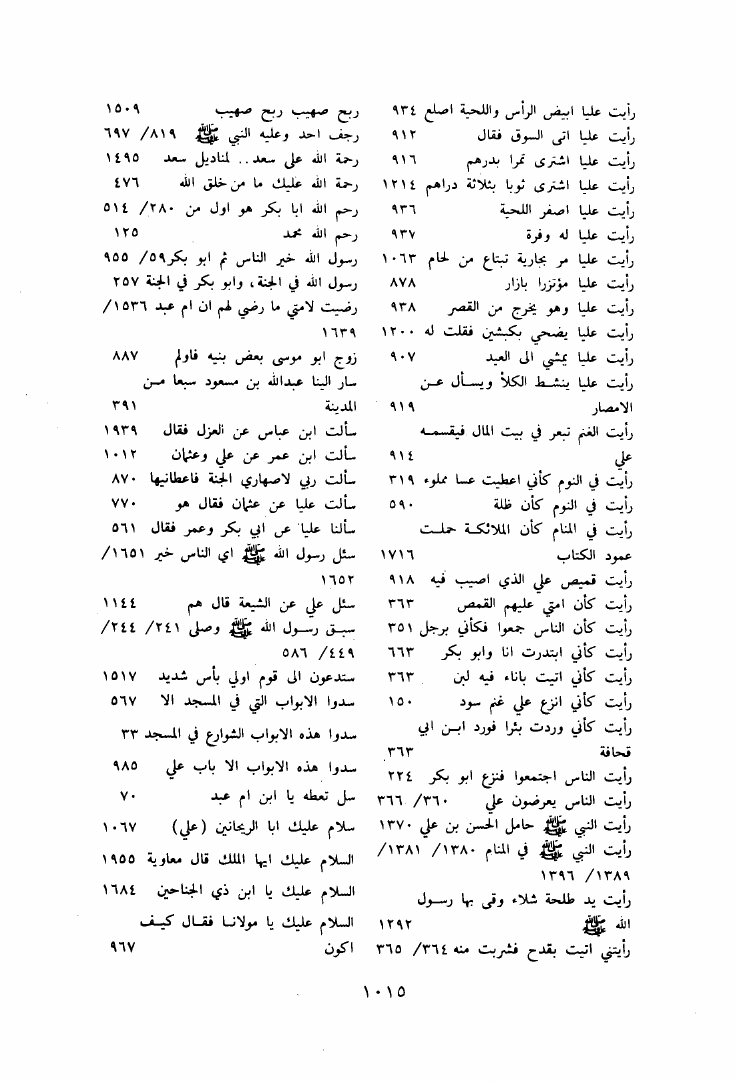 رأيت عليا ابيض الرأس واللحية اصلع ٩٣٤
رأيت عليا اتى السوق فقال ٩١٢
رأيت عليا اشترى تمرا بدرهم ٩١٦
رأيت عليا اشترى ثوبا بثلاثة دراهم ١٢١٤
رأيت عليا اصفر اللحية ٩٣٦
رأيت عليا له وفرة ٩٣٧
رأيت عليا مر بجارية تبتاع من لحام ١٠٦٣
رأيت عليا مؤتزرا بازار ٨٧٨
رأيت عليا وهو يخرج من القصر ٩٣٨
رأيت عليا يضحي بكبشين فقلت له ١٢٠٠
رأيت عليا يمشي الى العيد ٩٠٧
رأيت عليا ينشط الكلأ ويسأل عن
الامصار ٩١٩
رأيت الغنم تبعر في بيت المال فيقسمه
علي ٩١٤
رأيت في النوم كأني اعطيت عسا مملوء ٣١٩
رأيت في النوم كأن ظلة ٥٩٠
رأيت في المنام كأن الملائكة حملت
عمود الكتاب ١٧١٦
رأيت قميص علي الذي اصيب فيه ٩١٨
رأيت كأن امتي عليهم القمص ٣٦٣
رأيت كأن الناس جمعوا فكأني برجل ٣٥١
رأيت كأني ابتدرت انا وابو بكر ٦٦٣
رأيت كأني اتيت باناء فيه لبن ٣٦٣
رأيت كأني انزع علي غنم سود ١٥٠
رأيت كأني وردت بئرا فورد ابن ابي
قحافة ٣٦٣
رأيت الناس اجتمعوا فنزع ابو بكر ٢٢٤
رأيت الناس يعرضون علي ٣٦٠/ ٣٦٦
رأيت النبي ﷺ حامل الحسن بن علي ١٣٧٠
رأيت النبي ﷺ في المنام ١٣٨٠/ ١٣٨١/
١٣٨٩/ ١٣٩٦
رأيت يد طلحة شلاء وقى بها رسول
الله ﷺ ١٢٩٢
رأيتني اتيت بقدح فشربت منه ٣٦٤/ ٣٦٥
ربح صهيب ربح صهيب ١٥٠٩
رجف احد وعليه النبي ﷺ ٨١٩/ ٦٩٧
رحمة الله على سعد.. لمناديل سعد ١٤٩٥
رحمة الله عليك ما من خلق الله ٤٧٦
رحم الله ابا بكر هو اول من ٢٨٠/ ٥١٤
رحم الله محمد ١٢٥
رسول الله خير الناس ثم ابو بكر ٥٩/ ٩٥٥
رسول الله في الجنة، وابو بكر في الجنة ٢٥٧
رضيت لامتي ما رضي لهم ان ام عبد ١٥٣٦/
١٦٣٩
زوج ابو موسى بعض بنيه فاولم ٨٨٧
سار الينا عبدالله بن مسعود سبعا من
المدينة ٣٩١
سألت ابن عباس عن العزل فقال ١٩٣٩
سألت ابن عمر عن علي وعثمان ١٠١٢
سألت ربي لاصهاري الجنة فاعطانيها ٨٧٠
سألت عليا عن عثمان فقال هو ٧٧٠
سألنا عليا عن ابي بكر وعمر فقال ٥٦١
سئل رسول الله ﷺ اي الناس خير ١٦٥١/
١٦٥٢
سئل علي عن الشيعة قال هم ١١٤٤
سبق رسول الله ﷺ وصلى ٢٤١/ ٢٤٤/
٤٤٩/ ٥٨٦
ستدعون الى قوم اولي بأس شديد ١٥١٧
سدوا الابواب التي في المسجد الا ٥٦٧
سدوا هذه الابواب الشوارع في المسجد ٣٣
سدوا هذه الابواب الا باب علي ٩٨٥
سل تعطه يا ابن ام عبد ٧٠
سلام عليك ابا الريحانين (علي) ١٠٦٧
السلام عليك ايها الملك قال معاوية ١٩٥٥
السلام عليك يا ابن ذي الجناحين ١٦٨٤
السلام عليك يا مولانا فقال كيف
اكون ٩٦٧
١٠١٥